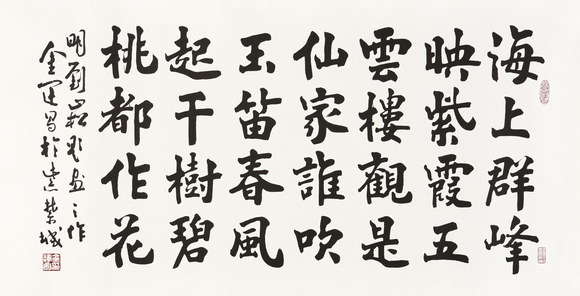 海上群峰
映紫霞五
雲樓觀是
仙家誰吹
玉笛春風
起千樹碧
桃都作花
明劉崧題畫之作
金運昌於紫禁城